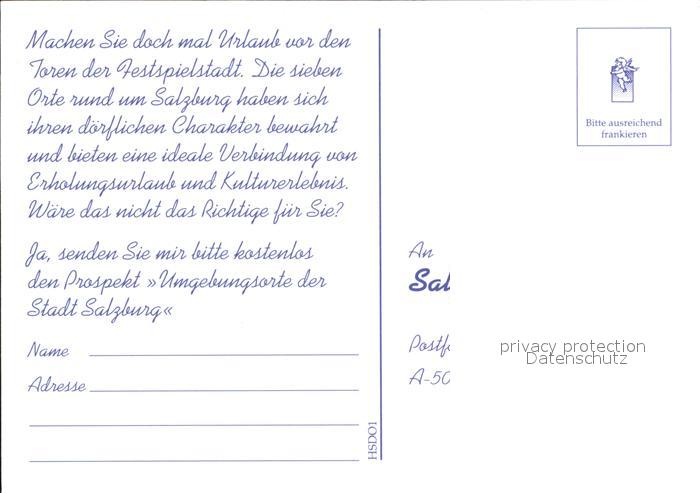 Machen Sie doch mal Urlaub vor den
Toren der Festspielstadt. Die sieben
Orte rund um Salzburg haben sich
ihren dörflichen Charakter bewahrt
und bieten eine ideale Verbindung von
Erholungsurlaub und Kulturerlebnis.
Wäre das nicht das Richtige für Sie?
Ja, senden Sie mir bitte kostenlos
den Prospekt »Umgebungsorte der
Stadt Salzburg«
Name
Adresse
HSDO1
Bitte ausreichend
frankieren
An
Sal
Postf
A-50
privacy protection
Datenschutz